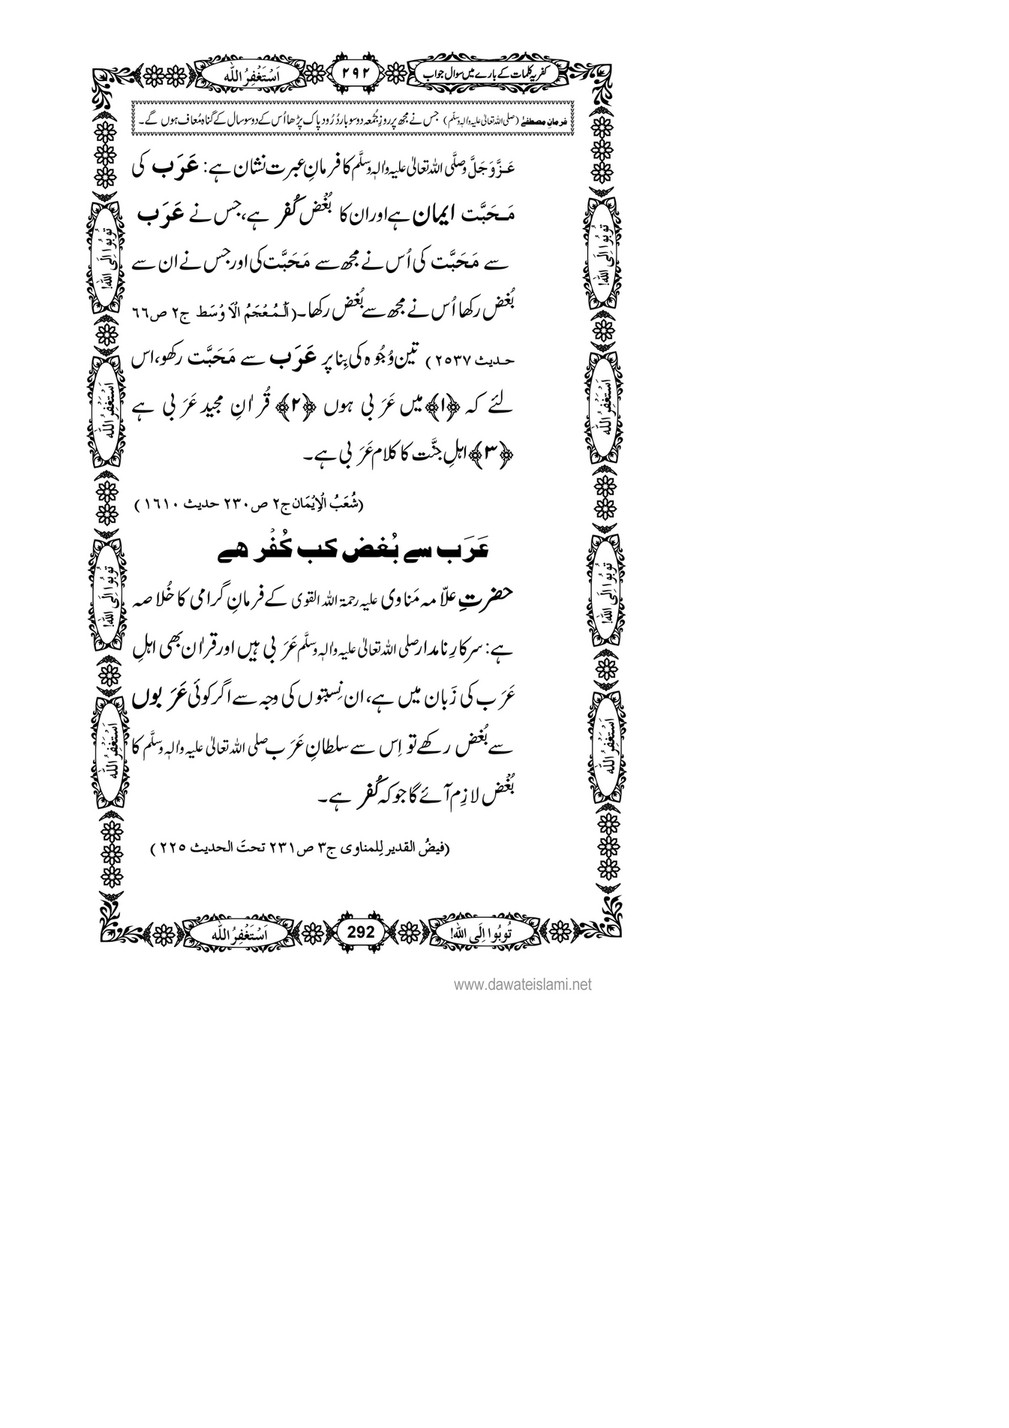 کفریہ کلمات کے بارے میں سوال جواب ۲۹۲ اَسْتَغْفِرُ اللّٰه
فرمانِ مصطفیٰ (صلی اللہ تعالیٰ علیہ والہٖ وسلم) جس نے مجھ پر روزِ جُمُعہ دو سو بار دُرُود پاک پڑھا اُس کے دو سو سال کے گناہ مُعاف ہوں گے۔
عَزَّوَجَلَّ وَصلَّی اللہ تعالیٰ علیہ والہٖ وسلَّم کا فرمانِ عبرت نشان ہے: عَرَب کی
مَحَبَّت ایمان ہے اور ان کا بُغْض کُفر ہے، جس نے عَرَب
سے مَحَبَّت کی اُس نے مجھ سے مَحَبَّت کی اور جس نے ان سے
بُغْض رکھا اُس نے مجھ سے بُغْض رکھا۔ (اَلْمُعْجَمُ الْاَ وْسَط ج۲ ص۶۶
حدیث ۲۵۳۷) تین وُجُوہ کی بِنا پر عَرَب سے مَحَبَّت رکھو، اس
لئے کہ ﴿۱﴾ میں عَرَ بی ہوں ﴿۲﴾ قُر اٰنِ مجید عَرَ بی ہے
﴿۳﴾ اہلِ جنَّت کا کلام عَرَ بی ہے۔
(شُعَبُ الْاِیْمَان ج۲ ص۲۳۰ حدیث ۱۶۱۰)
عَرَب سے بُغض کب کُفْر ھے
حضرتِ علاّمہ مَناوی علیہ رحمۃ اللہ القوی کے فرمانِ گرامی کا خُلاصہ
ہے: سرکارِ نامدار صلی اللہ تعالیٰ علیہ والہٖ وسلَّم عَرَ بی ہیں اور قراٰن بھی اہلِ
عَرَ ب کی زَبان میں ہے، ان نِسبتوں کی وجہ سے اگر کوئی عَرَ بوں
سے بُغْض رکھے تو اِس سے سلطانِ عَرَ ب صلی اللہ تعالیٰ علیہ والہٖ وسلَّم کا
بُغْض لازِم آئے گا جو کہ کُفر ہے۔
(فیضُ القدیر لِلمناوی ج۳ ص۲۳۱ تحتَ الحدیث ۲۲۵)
تُوبُوا اِلَی اللّٰه!
اَسْتَغْفِرُ اللّٰه
تُوبُوا اِلَی اللّٰه!
اَسْتَغْفِرُ اللّٰه
تُوبُوا اِلَی اللّٰه!
اَسْتَغْفِرُ اللّٰه
تُوبُوا اِلَی اللّٰه!
اَسْتَغْفِرُ اللّٰه
تُوبُوا اِلَی اللّٰه! 292 اَسْتَغْفِرُ اللّٰه
www.dawateislami.net